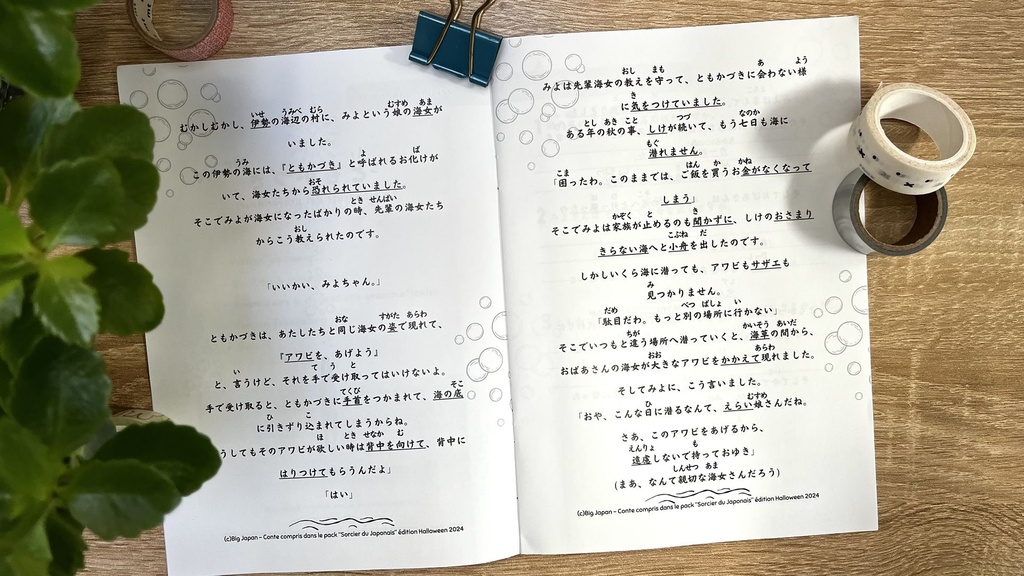 むかしむかし、伊勢の海辺の村に、みよという娘の海女が
いました。
この伊勢の海には、「ともかづき」と呼ばれるお化けが
いて、海女たちから恐れられていました。
そこでみよが海女になったばかりの時、先輩の海女たち
からこう教えられたのです。
「いいかい、みよちゃん。」
ともかづきは、あたしたちと同じ海女の姿で現れて、
「アワビを、あげよう」
と、言うけど、それを手で受け取ってはいけないよ。
手で受け取ると、ともかづきに手首をつかまれて、海の底
に引きずり込まれてしまうからね。
うしてもそのアワビが欲しい時は背中を向けて、背中に
はりつけてもらうんだよ」
「はい」
(c)Big Japan – Conte compris dans le pack "Sorcier du Japonais" édition Halloween 2024
みよは先輩海女の教えを守って、ともかづきに会わない様
に気をつけていました。
ある年の秋の事、しけが続いて、もう七日も海に
潜れません。
「困ったわ。このままでは、ご飯を買うお金がなくなって
しまう」
そこでみよは家族が止めるのも聞かずに、しけのおさまり
きらない海へと小舟を出したのです。
しかしいくら海に潜っても、アワビもサザエも
見つかりません。
「駄目だわ。もっと別の場所に行かない」
そこでいつもと違う場所へ潜っていくと、海草の間から、
おばあさんの海女が大きなアワビをかかえて現れました。
そしてみよに、こう言いました。
「おや、こんな日に潜るなんて、えらい娘さんだね。
さあ、このアワビをあげるから、
遠慮しないで持っておゆき」
(まあ、なんて親切な海女さんだろう)
(c)Big Japan – Conte compris dans le pack "Sorcier du Japonais" édition Halloween 2024